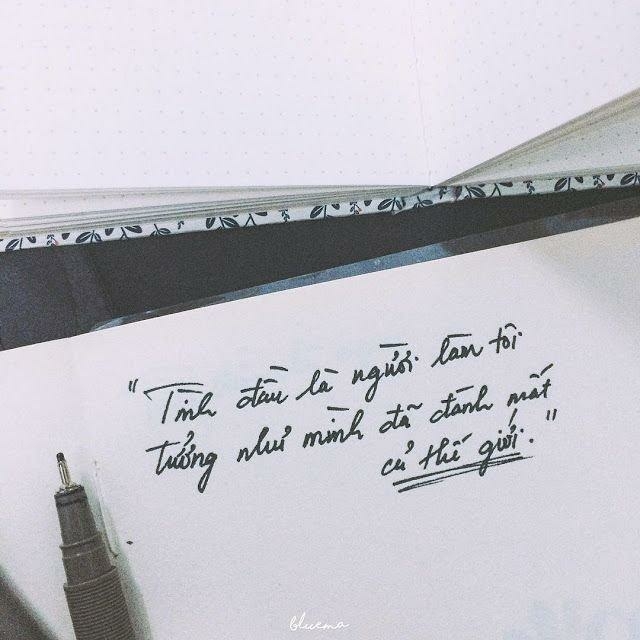 "Tình đầu là người làm tôi
tưởng như mình đã đánh mất
cả thế giới."
bluema